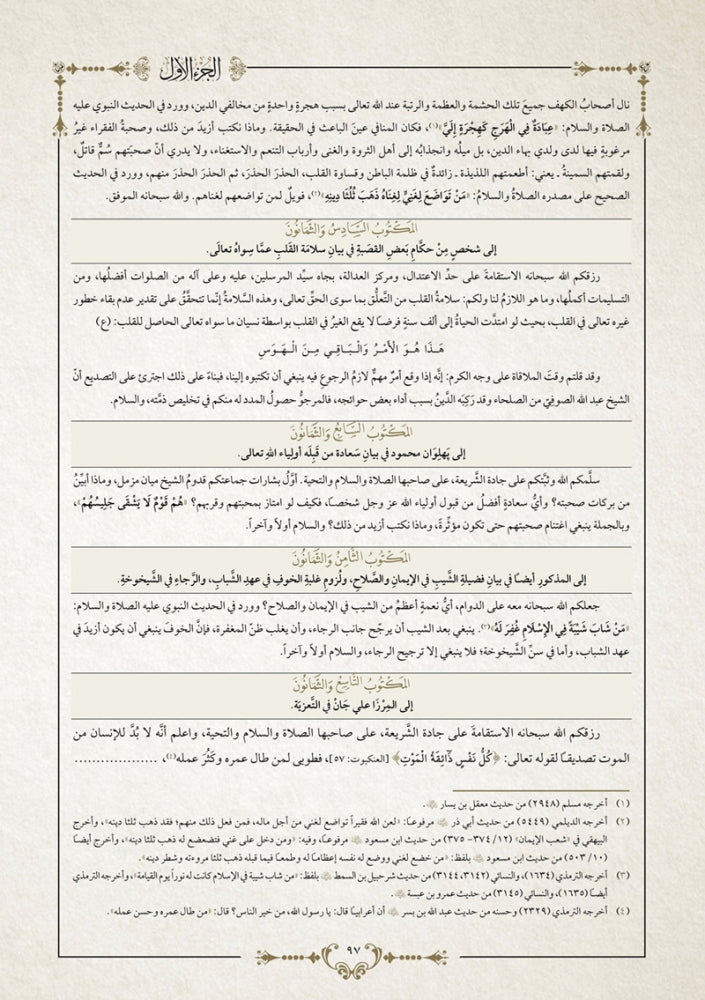 الجزء الأول
نال أصحابُ الكهف جميعَ تلك الحشمة والعظمة والرتبة عند الله تعالى بسبب هجرةٍ واحدةٍ من مخالفي الدين، وورد في الحديث النبوي عليه
الصلاة والسلام: «عِبَادَةٌ فِي الْهَرَجِ كَهِجْرَةٍ إِلَيَّ»(١)، فكان المنافي عينَ الباعث في الحقيقة. وماذا نكتب أزيدَ من ذلك، وصحبةُ الفقراء غيرُ
مرغوبةٍ فيها لدى ولدي بهاء الدين، بل ميلُه وانجذابُه إلى أهل الثروة والغنى وأرباب التنعم والاستغناء، ولا يدري أنّ صحبتَهم سُمٌّ قاتلٌ،
ولقمتَهم السمينةَ ـ يعني: أطعمتهم اللذيذة ـ زائدةٌ في ظلمة الباطن وقساوة القلب، الحذرَ الحذرَ، ثم الحذرَ الحذرَ منهم، وورد في الحديث
الصحيح على مصدره الصلاةُ والسلامُ: «مَنْ تَوَاضَعَ لِغَنِيٍّ لِغِنَاهُ ذَهَبَ ثُلُثَا دِينِهِ»(٢)، فويلٌ لمن تواضعهم لغناهم. والله سبحانه الموفق.
المَكتُوبُ السَّادِسُ وَالثَّمَانُونَ
إلى شخصٍ مِنْ حكَّامِ بَعضِ القَصَبةِ في بيانِ سلامَة القَلبِ عمَّا سِواهُ تعالَى.
رزقكم الله سبحانه الاستقامةَ على حدِّ الاعتدال، ومركز العدالة، بجاه سيِّد المرسلين، عليه وعلى آله من الصلوات أفضلُها، ومن
التسليمات أكملُها، وما هو اللازمُ لنا ولكم: سلامةُ القلب من التَّعلُّق بما سوى الحقِّ تعالى، وهذه السَّلامةُ إنَّما تتحقَّقُ على تقدير عدم بقاء خطور
غيره تعالى في القلب، بحيث لو امتدَّت الحياةُ إلى ألف سنةٍ فرضًا لا يقع الغيرُ في القلب بواسطة نسيان ما سواه تعالى الحاصل للقلب: (ع)
هَـذَا هُـوَ الأَمْـرُ وَالْـبَـاقِـي مِـنَ الْـهَـوَسِ
وقد قلتم وقتَ الملاقاة على وجه الكرم: إنَّه إذا وقع أمرٌ مهمٌّ لازمُ الرجوعِ فيه ينبغي أن تكتبوه إلينا، فبناءً على ذلك اجترئ على التصديع أنَّ
الشيخ عبد الله الصوفيَّ من الصلحاء وقد رَكِبَه الدَّينُ بسبب أداء بعض حوائجه، فالمرجوُّ حصولُ المدد له منكم في تخليص ذمَّته، والسلام.
المَكتُوبُ السَّابِعُ وَالثَّمَانُونَ
إلى پَهلِوَان محمود في بيانِ سَعادة من قَبِلَه أولياءُ اللهِ تعالى.
سلَّمكم الله وثبَّتكم على جادة الشَّريعة، على صاحبها الصلاة والسلام والتحية. أوَّلُ بشارات جماعتكم قدومُ الشيخ ميان مزمل، وماذا أبيِّنُ
من بركات صحبته؟ وأيُّ سعادةٍ أفضلُ من قبول أولياء الله عز وجل شخصًا، فكيف لو امتاز بمحبتهم وقربهم؟ «هُمْ قَوْمٌ لَا يَشْقَى جَلِيسُهُمْ»،
وبالجملة ينبغي اغتنام صحبتهم حتى تكون مؤثِّرةً، وماذا نكتب أزيد من ذلك؟ والسلام أولاً وآخراً.
المَكتُوبُ الثَّامِنُ وَالثَّمَانُونَ
إلى المذكورِ أيضًا في بيان فضيلةِ الشَّيبِ في الإيمانِ والصَّلاحِ، ولُزومِ غلبةِ الخوفِ في عهدِ الشَّبابِ، والرَّجاءِ في الشَّيخوخةِ.
جعلكم الله سبحانه معه على الدوام، أيُّ نعمةٍ أعظمُ من الشيب في الإيمان والصلاح؟ وورد في الحديث النبوي عليه الصلاة والسلام:
«مَنْ شَابَ شَيْبَةً فِي الإِسْلَامِ غُفِرَ لَهُ»(٣). ينبغي بعد الشيب أن يرجّح جانب الرجاء، وأن يغلب ظنّ المغفرة، فإنَّ الخوفَ ينبغي أن يكون أزيدَ في
عهد الشباب، وأما في سنّ الشَّيخوخة؛ فلا ينبغي إلا ترجيح الرجاء، والسلام أولاً وآخراً.
المَكتُوبُ التَّاسِعُ وَالثَّمَانُونَ
إلى المِرْزَا علي جَانْ في التَّعزيَة.
رزقكم الله سبحانه الاستقامةَ على جادة الشَّريعة، على صاحبها الصلاة والسلام والتحية، واعلم أنَّه لا بُدَّ للإنسان من
الموت تصديقًا لقوله تعالى: ﴿كُلُّ نَفْسٍ ذَائِقَةُ الْمَوْتِ﴾ [العنكبوت: ٥٧]، فطوبى لمن طال عمره وكَثُرَ عمله(٤)، ...................
(١) أخرجه مسلم (٢٩٤٨) من حديث معقل بن يسار ﷺ.
(٢) أخرجه الديلمي (٥٤٤٩) من حديث أبي ذر مرفوعًا: «لعن الله فقيراً تواضع لغني من أجل ماله، فمن فعل ذلك منهم؛ فقد ذهب ثلثا دينه»، وأخرج
البيهقي في «شعب الإيمان» (١٢/ ٣٧٤- ٣٧٥) من حديث ابن مسعود مرفوعًا، وفيه: «ومن دخل على غني فتضعضع له ذهب ثلثا دينه»، وأخرج أيضًا
(١٠/ ٥٠٣) من حديث ابن مسعود بلفظ: «من خضع لغني ووضع له نفسه إعظامًا له وطمعًا فيما قبله ذهب ثلثا مروءته وشطر دينه».
(٣) أخرجه الترمذي (١٦٣٤)، والنسائي (٣١٤٢، ٣١٤٤) من حديث شرحبيل بن السمط بلفظ: «من شاب شيبة في الإسلام كانت له نوراً يوم القيامة»، وأخرجه الترمذي
أيضًا (١٦٣٥)، والنسائي (٣١٤٥) من حديث عمرو بن عبسة.
(٤) أخرجه الترمذي (٢٣٢٩) وحسنه من حديث عبد الله بن بسر أن أعرابيا قال: يا رسول الله، من خير الناس؟ قال: «من طال عمره وحسن عمله».
٩٧